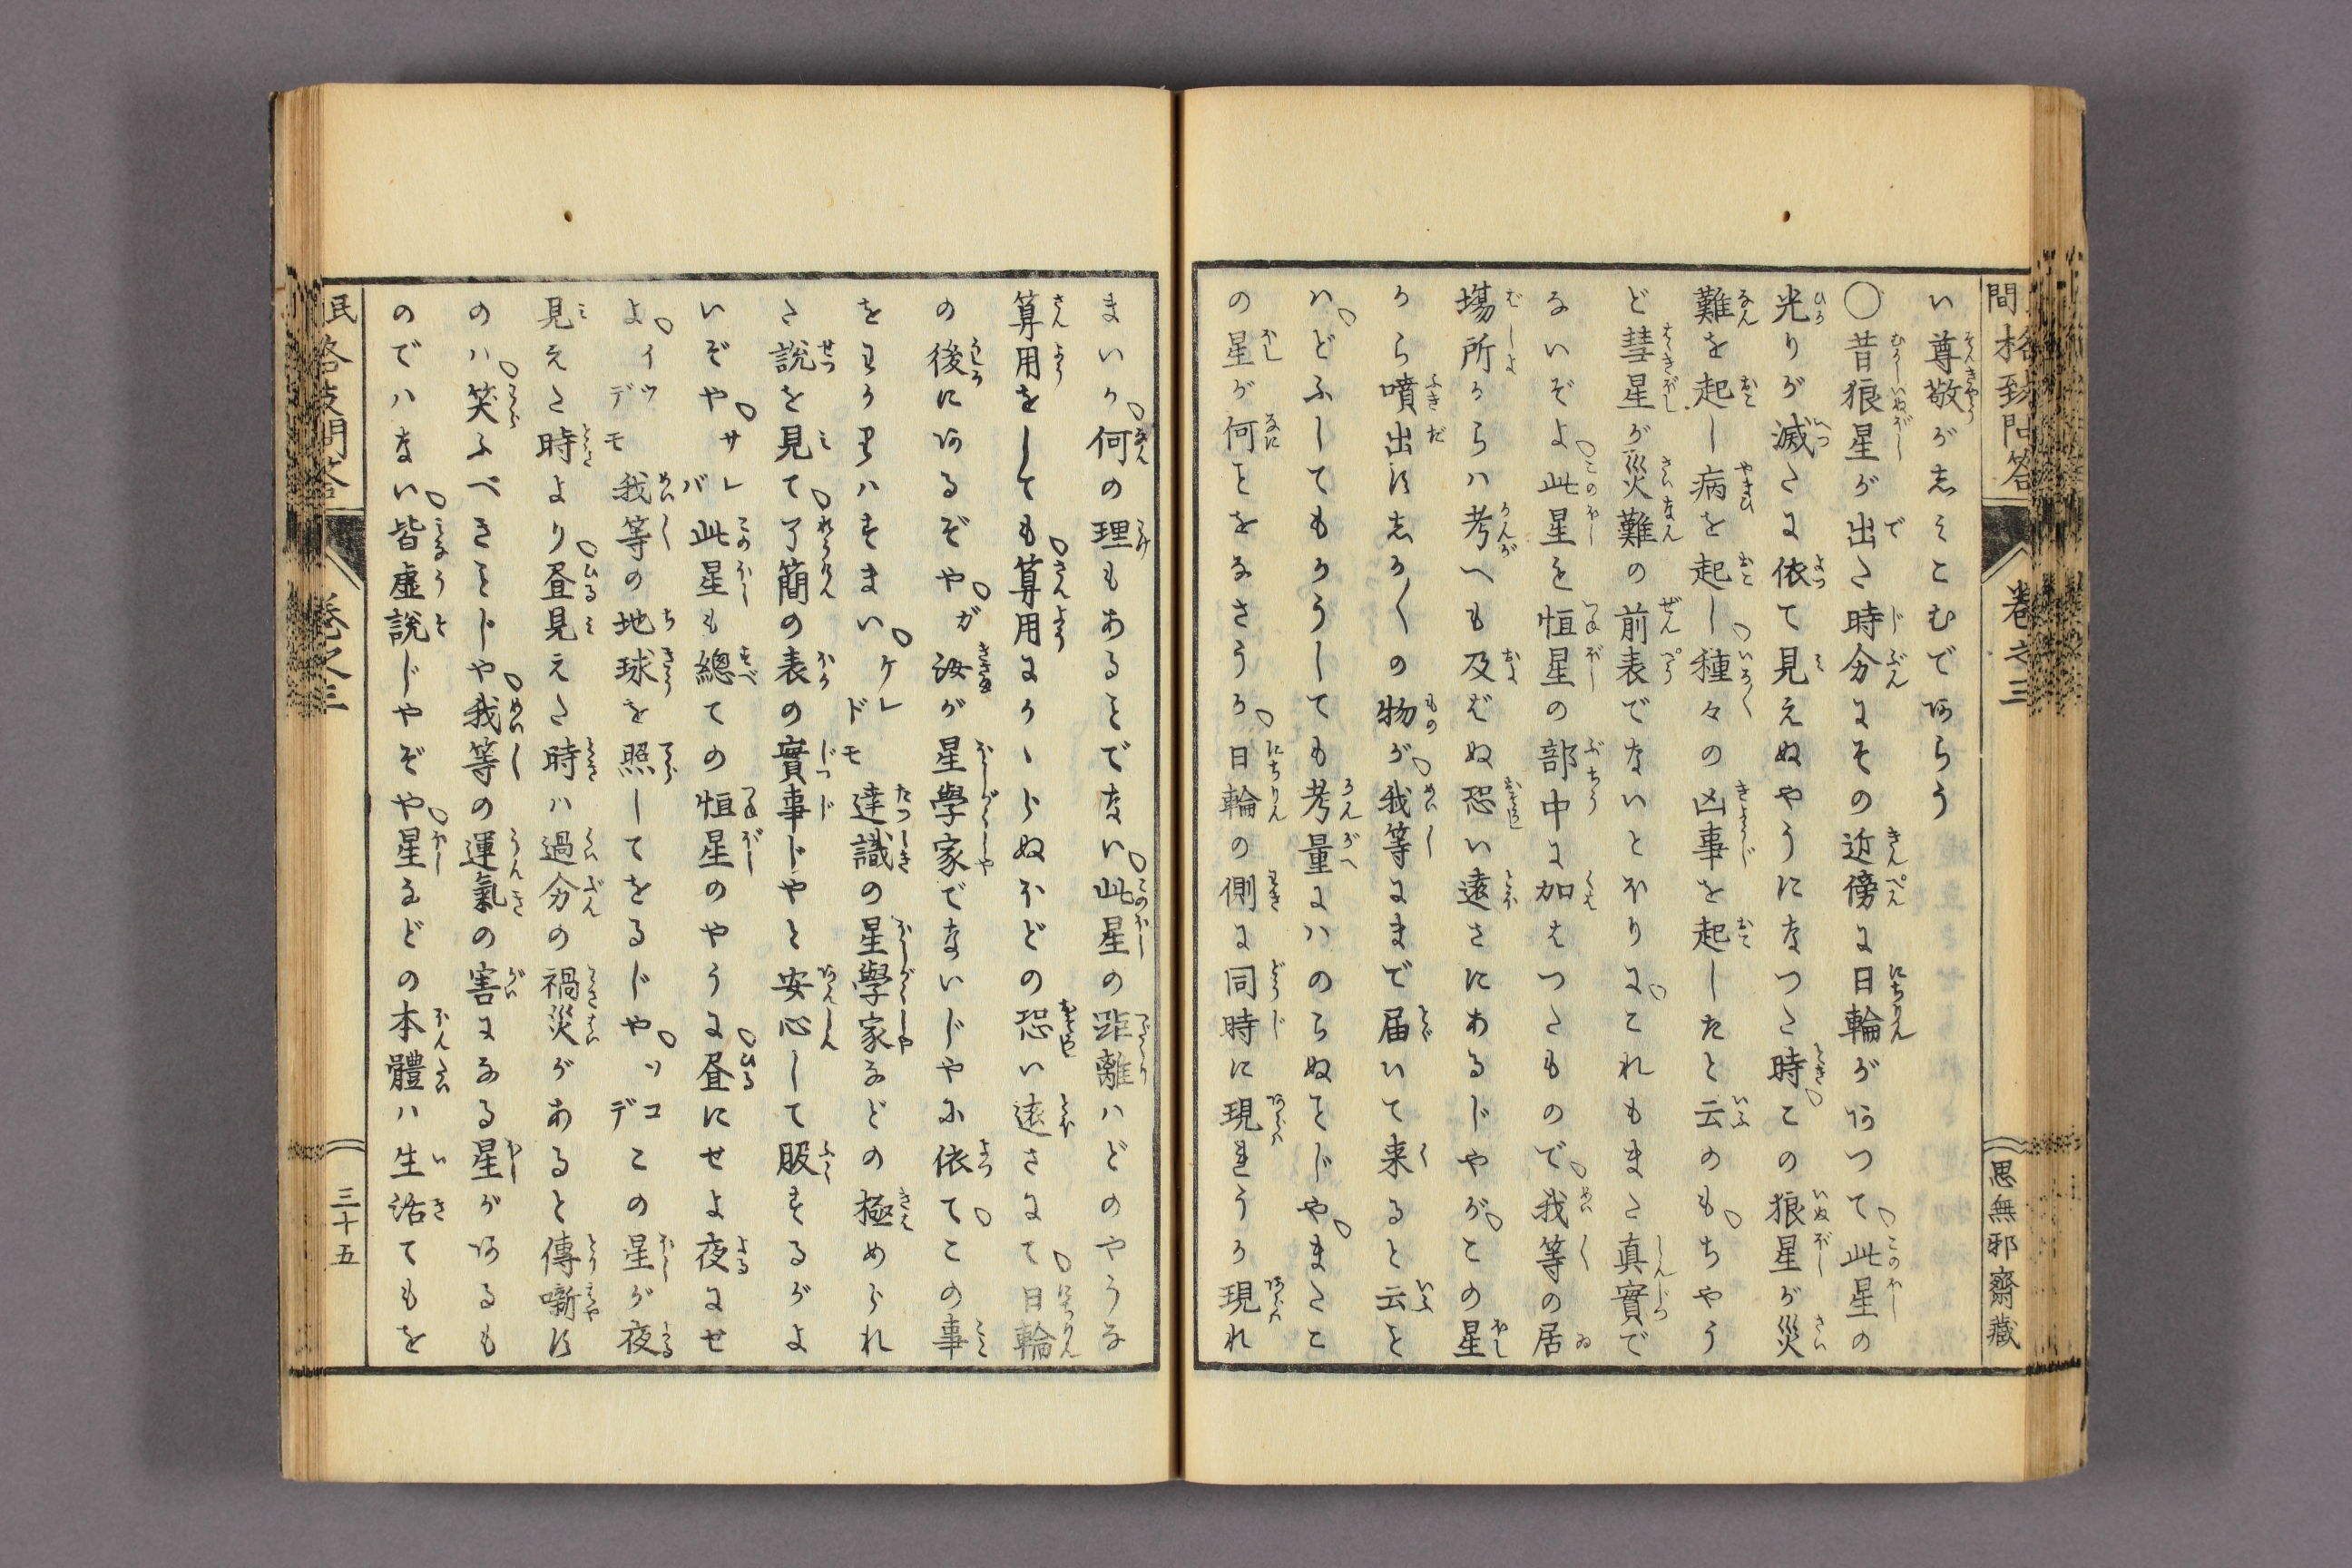 い尊敬が志みこむであらう
〇昔狼星が出た時分にその近傍に日輪があつて此星の
光りが滅たに依て見えぬやうになつた時この狼星が災
難を起し病を起し種々の凶事を起したと云のもちやう
ど彗星が災難の前表でないとほりにこれもまた真實で
ないぞよ此星を恒星の部中に加えつたもので我等の居
場所からハ考へも及ばぬ恐い遠さにあるじやがこの星
から噴出す志か〱の物が我等にまで届いて来ると云こと
ハどふしてもかうしても考量にハのらぬことじやまたこ
の星が何ことをなさうか日輪の側に同時に現れうか現れ
まいか何の理もあることでない此星の距離ハどのやうな
算用をしても算用にかゝらぬほどの恐い遠さにて日輪
の後にあるぞやガ汝が星學家でないじやに依てこの事
をわかりハすまいケレドモ達識の星學家などの極められ
た説を見て了簡の表の實事じやと安心して服するがよ
いぞやサレバ此星も總ての恒星のやうに昼にせよ夜にせ
よイツデモ我等の地球を照してをるじやソコデこの星が夜
見えた時より昼見えた時ハ過分の禍災があると傳噺す
のハ笑ふべきことじや我等の運氣の害になる星があるも
のでハない皆虚説じやぞや星などの本體ハ生活てもを
間格致問答
卷之三
思無邪齋藏
三十五